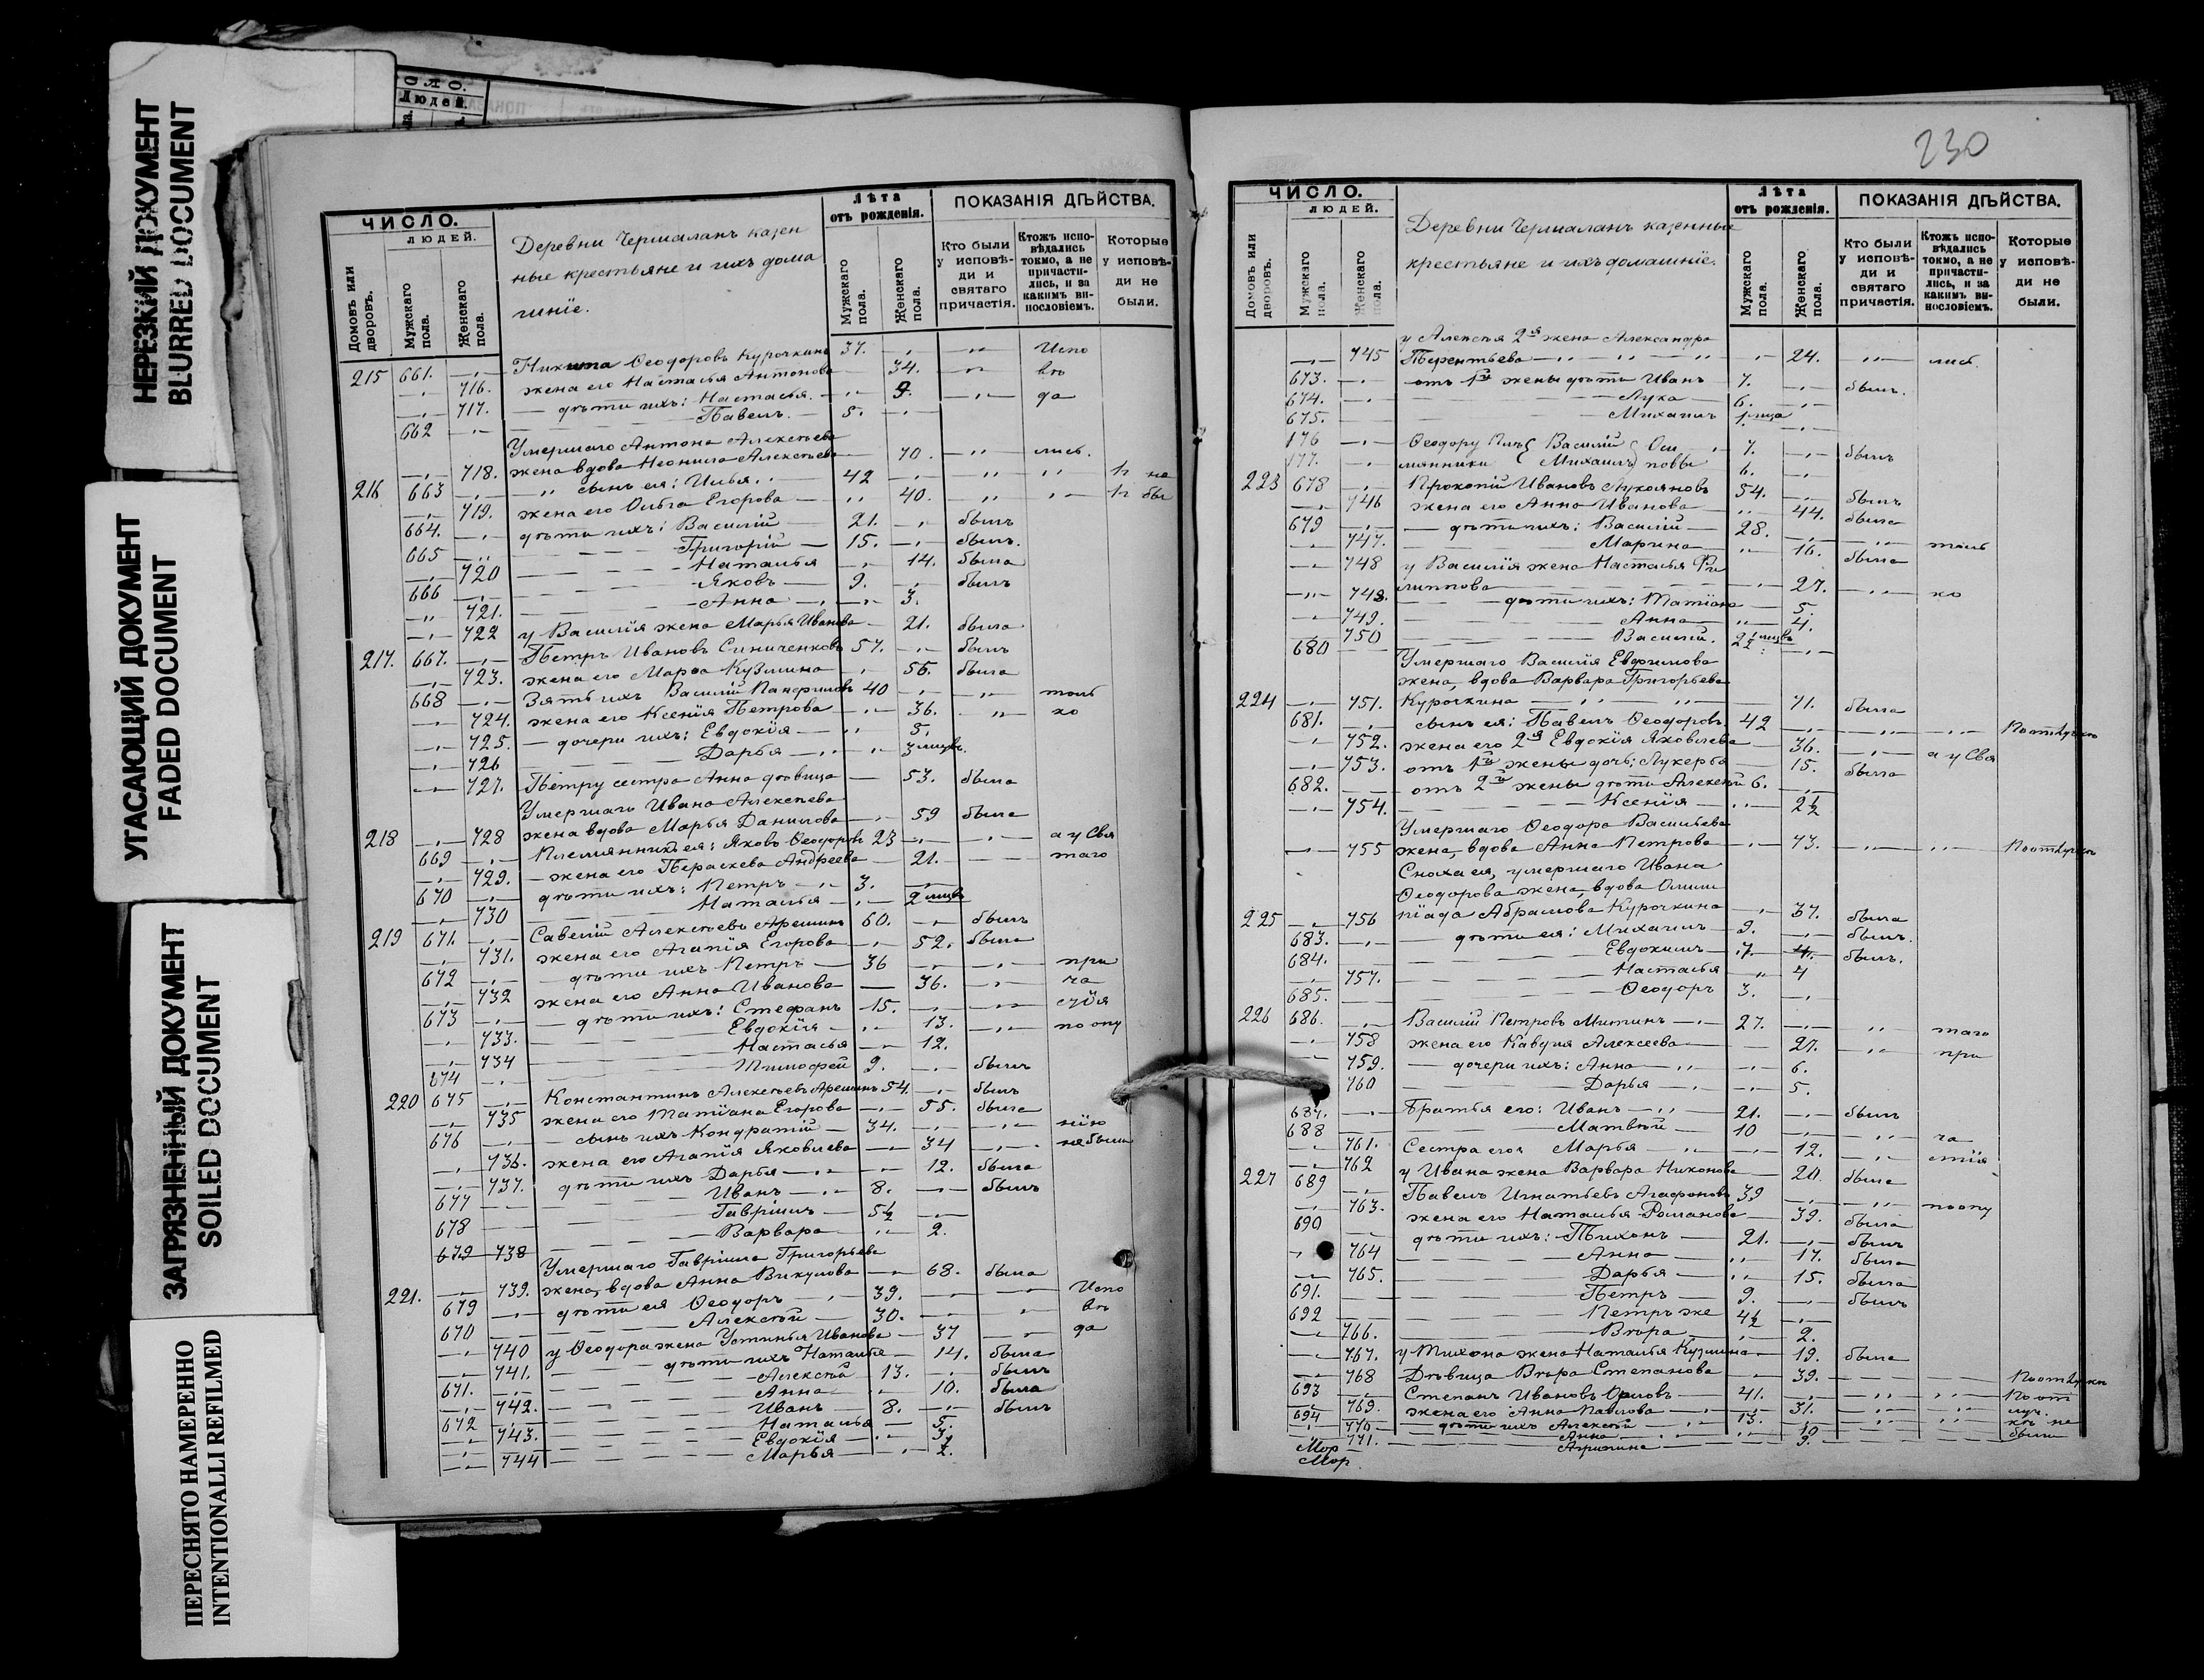 НЕРЕЗКИЙ ДОКУМЕНТ
BLURRED DOCUMENT
УГАСАЮЩИЙ ДОКУМЕНТ
FADED DOCUMENT
ЗАГРЯЗНЕННЫЙ ДОКУМЕНТ
SOILED DOCUMENT
ПЕРЕСНЯТО НАМЕРЕННО
INTENTIONALLI REFILMED
Людей.
ЧИСЛО.
ЛЮДЕЙ.
Домовъ или дворовъ.
Мужскаго пола.
Женскаго пола.
Деревни Чермаланъ казен
ные крестьяне и ихъ дома
шніе.
Лѣта отъ рожденія.
Мужскаго пола.
Женскаго пола.
ПОКАЗАНІЯ ДѢЙСТВА.
Кто были у исповѣ-ди и святаго причастія.
Ктожъ испо-вѣдались токмо, а не причасти-лись, и за какимъ ви-нословіемъ.
Которые у исповѣ-ди не были.
215 661. Никита Ѳеодоровъ Курочкинъ 37. Испо
716. жена его Настасья Антонова 34. вѣ
717. дѣти ихъ: Настасья. 9. да
662 Павелъ. 5.
Умершаго Антона Алексѣева
718. жена вдова Неонила Алексѣева 70. лись.
216 663 сынъ ея: Илья 42 не
719. жена его Ольга Егорова 40. бы
664. дѣти ихъ: Василій 21. былъ
665 Григорій 15. былъ.
720 Наталья 14. была
666 Яковъ 9. былъ
721. Анна 3.
722 у Василія жена Марья Иванова 21. была
217. 667. Петръ Ивановъ Синиченковъ 57. былъ
723. жена его Марѳа Кузмина 56. была
668 Зять ихъ Василій Панфиловъ 40 толь
724. жена его Ксенія Петрова 36. ко
725. дочери ихъ: Евдокія 5.
726 Дарья 3 мцвъ.
727. Петру сестра Анна дѣвица 53. была
Умершаго Ивана Алексѣева
218 728 жена вдова Марья Данилова 59 была
669 Племянникъ ея: Яковъ Ѳеодоровъ 23 а у Свя
729. жена его Параскева Андреева 21. таго
670 дѣти ихъ: Петръ 3.
730 Наталья 2 мцвъ
219 671. Савелій Алексѣевъ Арешинъ 60. былъ
731. жена его Агапія Егорова 52. была
672 дѣти ихъ Петръ 36 при
732 жена его Анна Иванова 36. ча
673 дѣти ихъ: Стефанъ 15. стія
733. Евдокія 13. по опу
734 Настасья 12.
674 Тимофей 9. былъ
220 675 Константинъ Алексѣевъ Арешинъ 54. былъ
735 жена его Татіана Егорова 55. была
676 сынъ ихъ Кондратій 34. нію
736. жена его Агапія Яковлева 34 не были
737. дѣти ихъ Дарья 12. была
677 Иванъ 8. былъ
678 Гавріилъ 5½
679 738 Варвара 2.
Умершаго Гавріила Григорьева
221. 739. жена, вдова Анна Викулова 68. была
679 дѣти ея Ѳеодоръ 39. Испо
670 Алексѣй 30. вѣ
740 у Ѳеодора жена Устинья Иванова 37 да
741. дѣти ихъ Наталья 14. была
671. Алексѣй 13. былъ
742. Анна 10. была
672 Иванъ 8. былъ
743. Наталья 5.
Евдокія 3.
744 Марья
230
ЧИСЛО.
ЛЮДЕЙ.
Домовъ или дворовъ.
Мужскаго пола.
Женскаго пола.
Деревни Чермаланъ казенные
крестьяне и ихъ домашніе.
Лѣта отъ рожденія.
Мужскаго пола.
Женскаго пола.
ПОКАЗАНІЯ ДѢЙСТВА.
Кто были у исповѣ-ди и святаго причастія.
Ктожъ испо-вѣдались токмо, а не причасти-лись, и за какимъ ви-нословіемъ.
Которые у исповѣ-ди не были.
у Алексѣя 2я жена Александра
745 Терентьева 24. лись.
673. отъ 1й жены дѣти Иванъ 7. былъ.
674. Лука 6.
675. Михаилъ
176 Ѳеодору Пле Василій Оси 7. былъ
177. мянники Михаилъ повы 6.
223 678 Прокопій Ивановъ Лукояновъ 54. былъ
746 жена его Анна Иванова 44. была
679 дѣти ихъ: Василій 28. толь
747. Марина 16. была
748 у Василія жена Настасья Фи
липпова 27. ко
748. дѣти ихъ: Татіана 5.
749. Анна 4.
750
680 Василій.
Умершаго Василія Евфимова
жена, вдова Варвара Григорьева
224 751. Курочкина 71. была
681. сынъ ея: Павелъ Ѳеодоровъ 42 По отлучкѣ
752. жена его 2я Евдокія Яковлева 36. а у Свя
753. отъ 1й жены дочь: Лукерья 15. была
682. отъ 2й жены дѣти Алексѣй 6.
754. Ксенія 2½
Умершаго Ѳеодора Васильева
755 жена, вдова Анна Петрова 73. По отлучкѣ
Сноха ея, умершаго Ивана
Ѳеодорова жена, вдова Олим
225 756 піада Абрамова Курочкина 37. была
683. дѣти ея: Михаилъ 9. былъ.
684. Евдокимъ 7. былъ.
757. Настасья 4
685. Ѳеодоръ 3.
226 686. Василій Петровъ Митинъ 27. таго
758 жена его Клавдія Алексеева 27. при
759. дочери ихъ: Анна 6.
760 Дарья 5.
687. Братья его: Иванъ 21. былъ
688 Матвѣй 10 ча
761. Сестра его Марья 12. стія
762 у Ивана жена Варвара Никонова 20. была
227 689 Павелъ Игнатьевъ Агафоновъ 39 по опу
763. жена его Наталья Романова 39. была
690 дѣти ихъ: Тихонъ 21. былъ
764 Анна 17. была
765. Дарья 15. была
691. Петръ 9. былъ
692 Петръ же 4½
766. Вѣра 2.
767. у Тихона жена Наталья Кузмина 19. была
768 Дѣвица Вѣра Степанова 39. По отлучкѣ
693 Степанъ Ивановъ Орловъ 41. По от
769. жена его Анна Павлова 31. луч
694 дѣти ихъ Алексѣй 13. кѣ не
770 Анна 10 были
771. Агрипина 9.